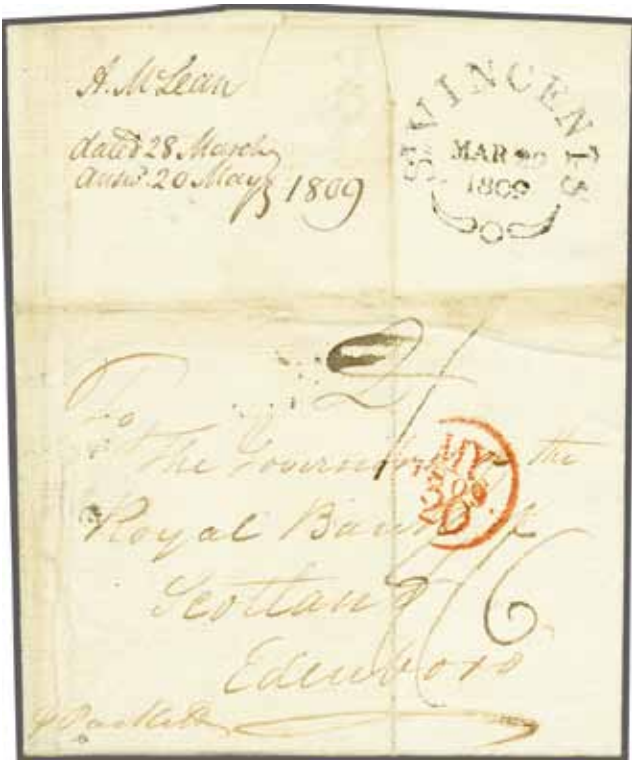 A. McLean
dated 28 March
answ. 20 May 1809
ST VINCENTS
MAR 29
1809
2/
To
The Governor of the
MY
20
Royal Bank of
Scotland
/6
Edenboro
p Packett